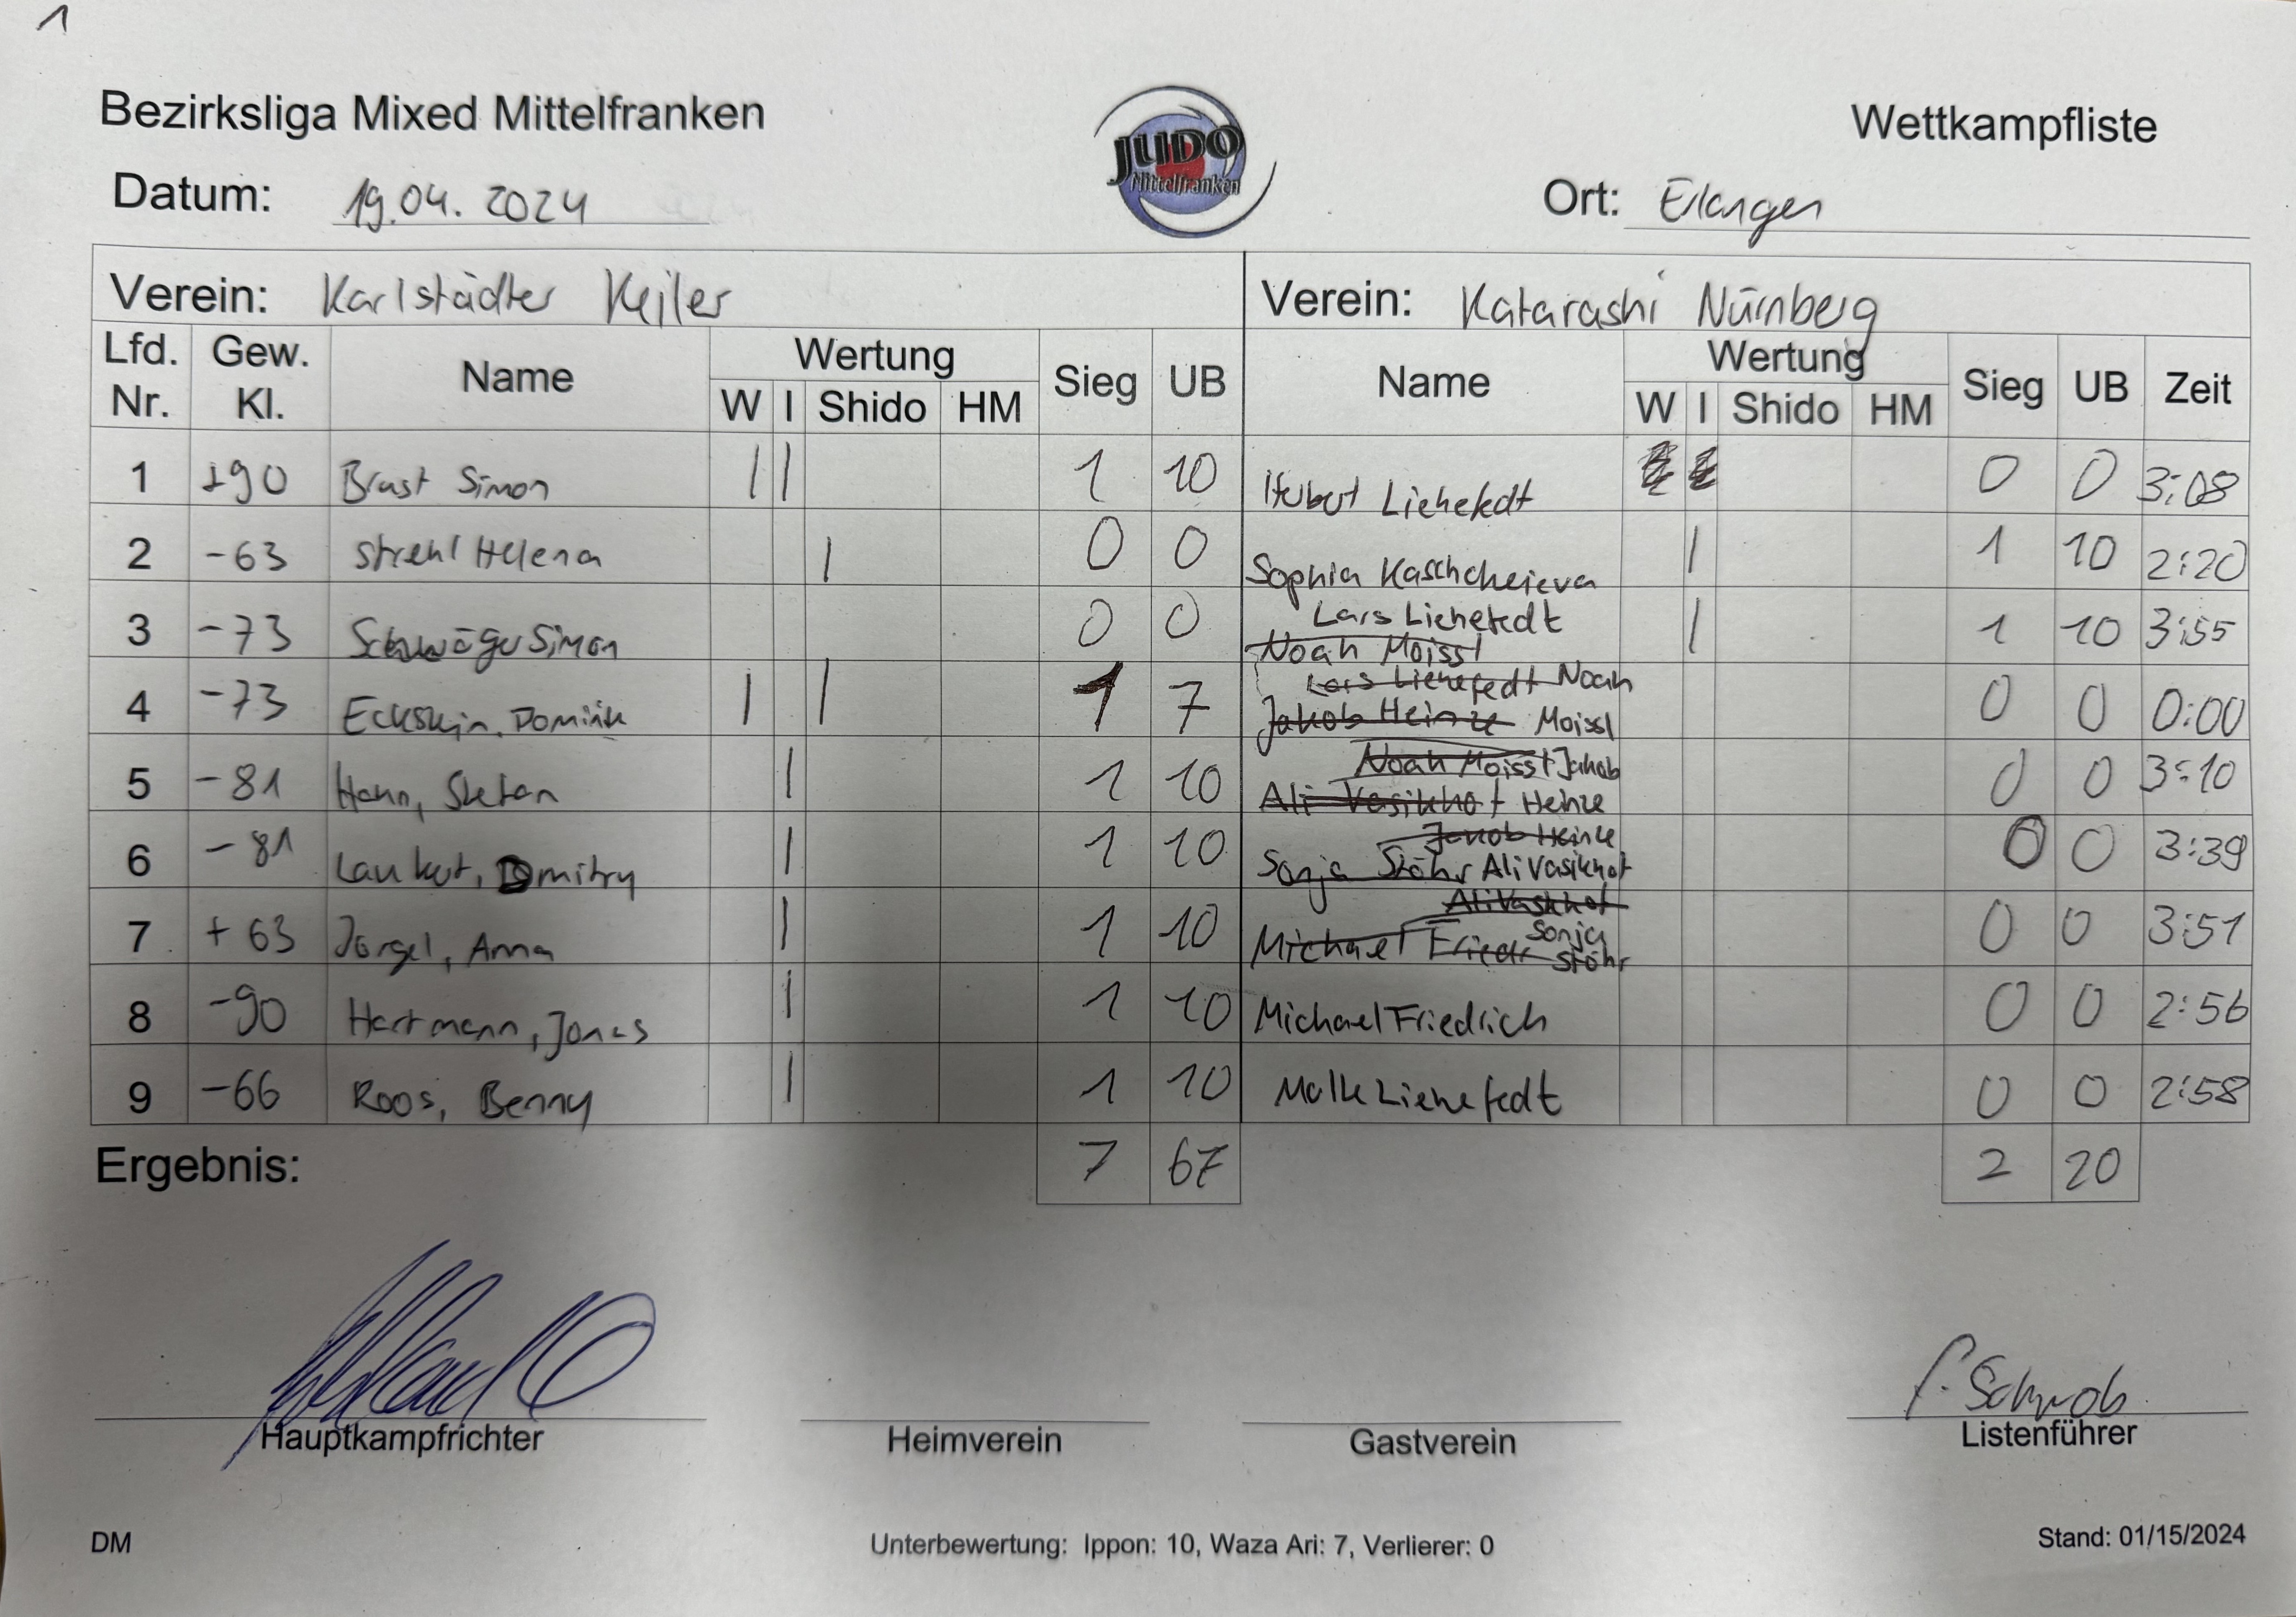 1
Bezirksliga Mixed Mittelfranken
JUDO
Mittelfranken
Wettkampfliste
Datum: 19.04.2024
Ort: Erlangen
Verein: Karlstädter Keiler Verein: Katarashi Nürnberg
Lfd. Nr. Gew. Kl. Name Wertung Sieg UB Name Wertung Sieg UB Zeit
W I Shido HM W I Shido HM
1 +90 Brust Simon | | 1 10 Hubert Lienefedt 0 0 3:08
2 -63 Strehl Helena | 0 0 Sophia Kaschcheieva | 1 10 2:20
3 -73 Schwäger Simon 0 0 Lars Lienefedt | 1 10 3:55
Noah Moissl
4 -73 Eckstein, Dominik | | 1 7 Lars Lienefedt Noah 0 0 0:00
Jakob Heinze Moissl
5 -81 Hann, Stefan | 1 10 Noah Moissl Jakob 0 0 3:10
Ali Vasikhot Heinze
6 -81 Laukert, Dmitry | 1 10 Jakob Heinze 0 0 3:39
Sonja Stöhr Ali Vasikhot
7 +63 Jorgel, Anna | 1 10 Ali Vasikhot 0 0 3:51
Michael Friedr Sonja Stöhr
8 -90 Hartmann, Jonas | 1 10 Michael Friedrich 0 0 2:56
9 -66 Roos, Benny | 1 10 Malte Lienefedt 0 0 2:58
Ergebnis: 7 67 2 20
Schwab
Hauptkampfrichter Heimverein Gastverein Listenführer
DM Unterbewertung: Ippon: 10, Waza Ari: 7, Verlierer: 0 Stand: 01/15/2024